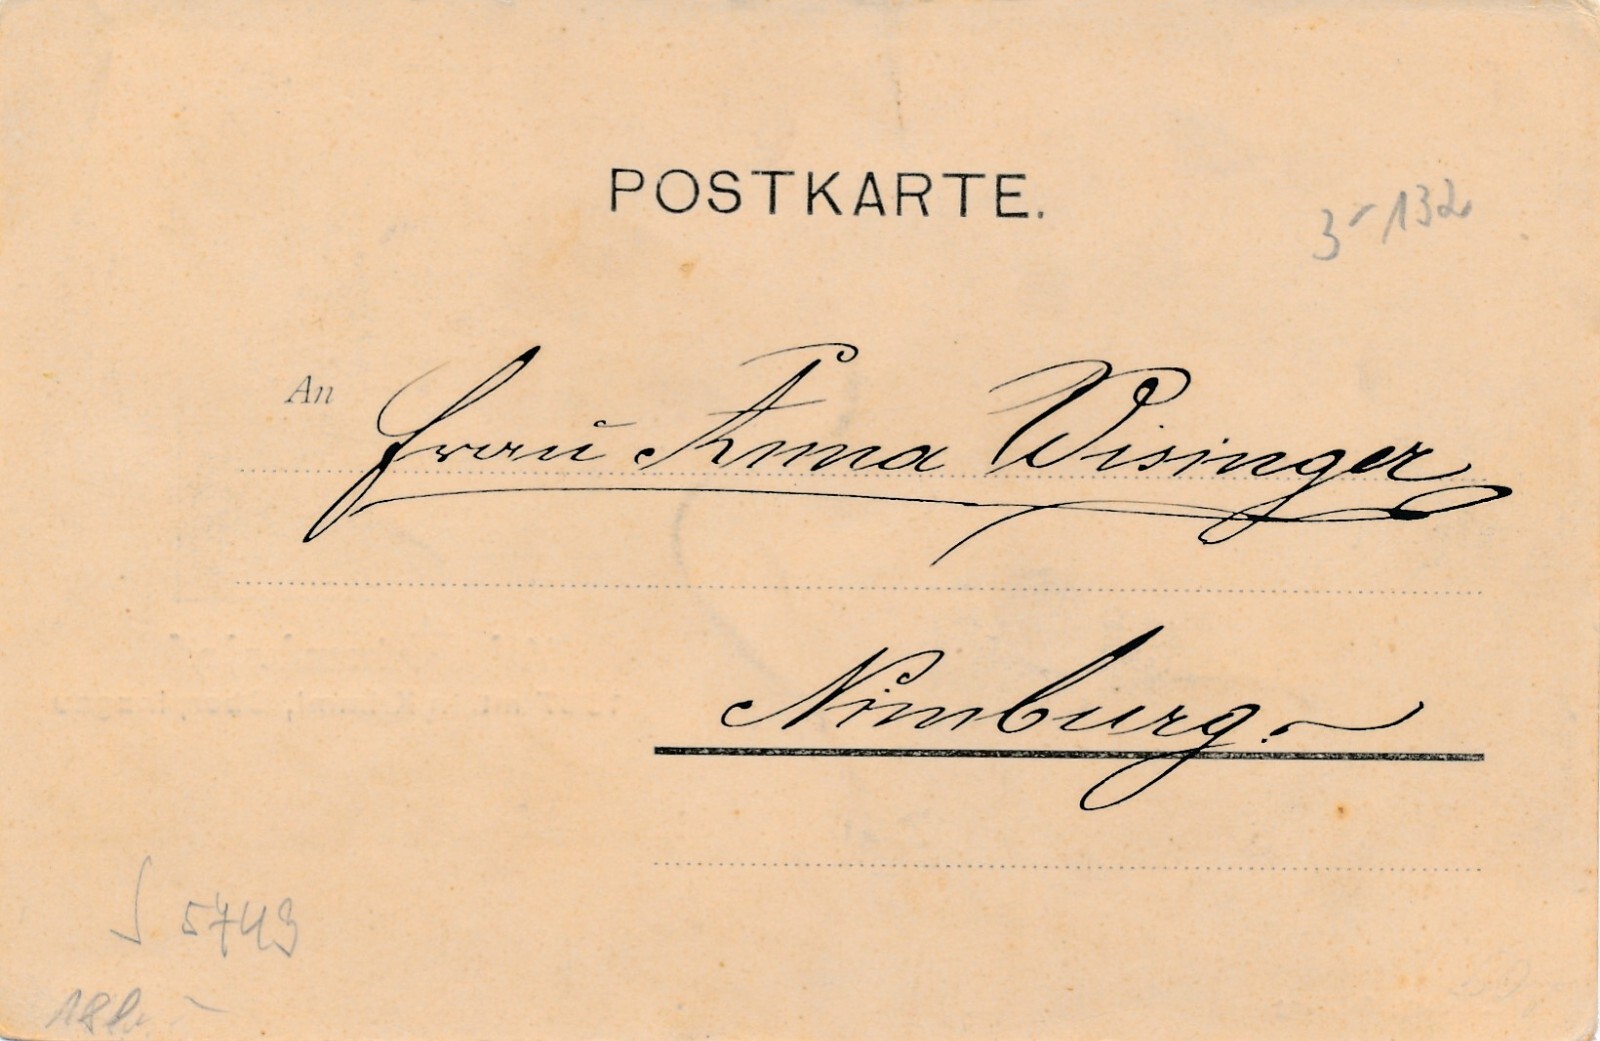 POSTKARTE.
3 - 132
An Frau Anna Wisinger
Nimburg.
J 5743